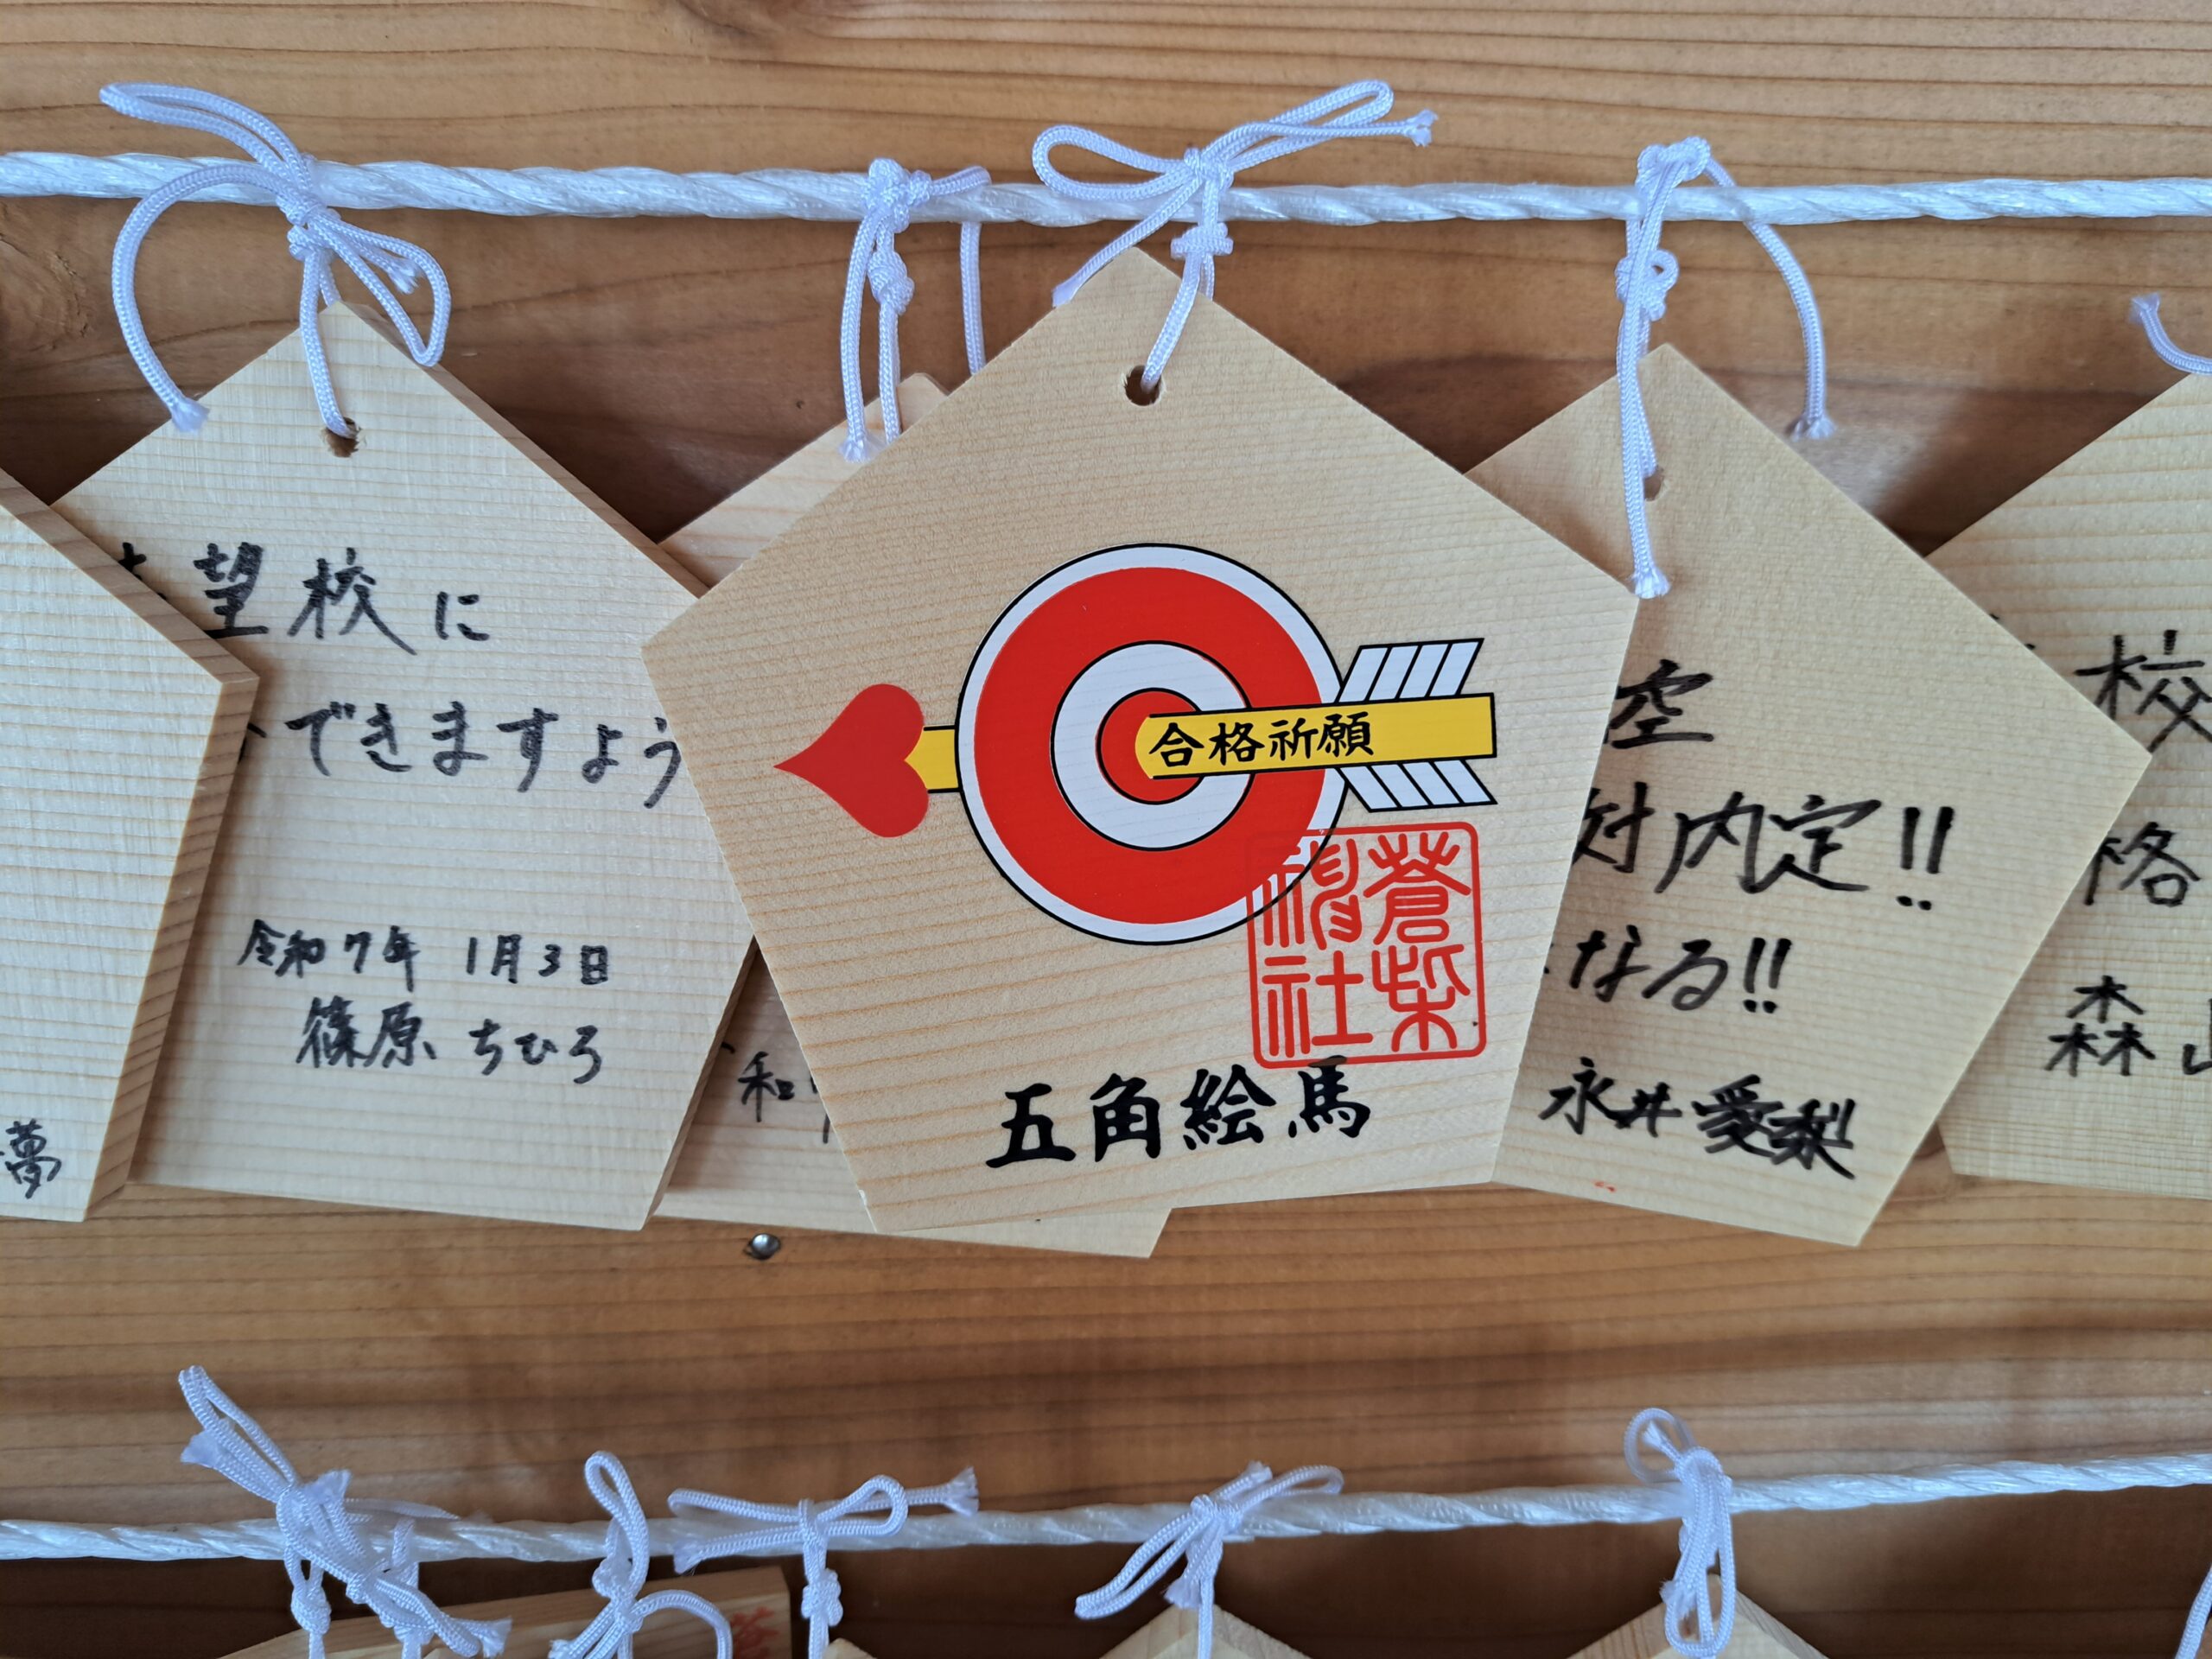 望校に
できますよう
令和7年 1月3日
篠原 ちひろ
夢
和
合格祈願
蒼柴
神社
五角絵馬
空
対内定!!
なる!!
永井愛梨
校
格
森山